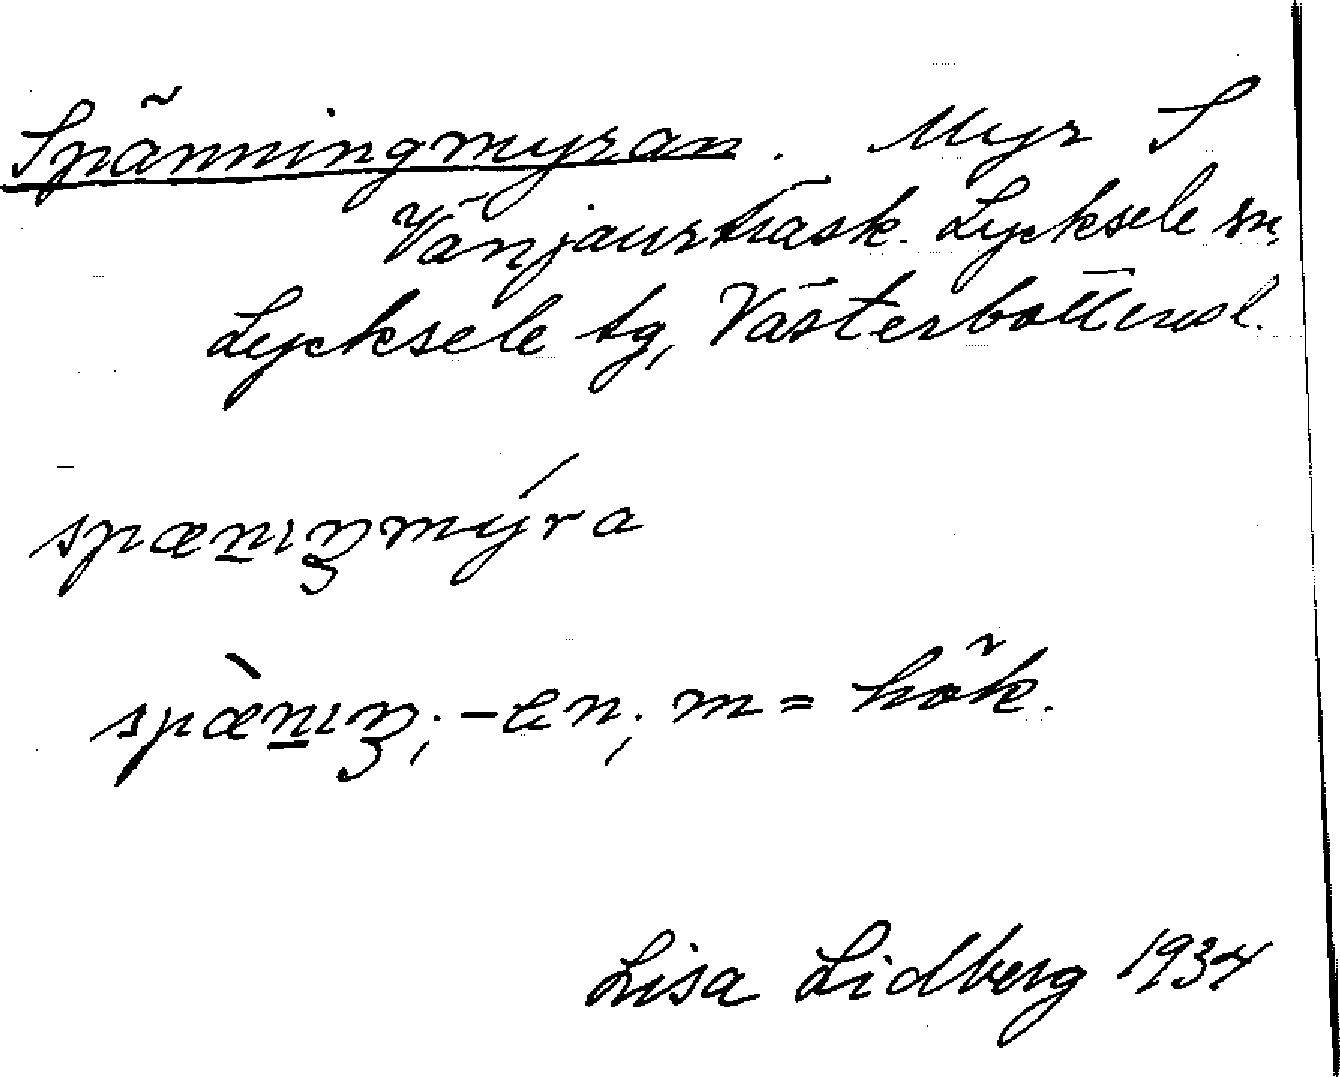 Spänningmyran. Myr S
Vänjaurträsk. Lycksele sn,
Lycksele tg, Västerbottensl.
spæn̲ıŋmýra
spæ̀n̲ıŋ; -en; m = hök.
Lisa Lidberg 1934